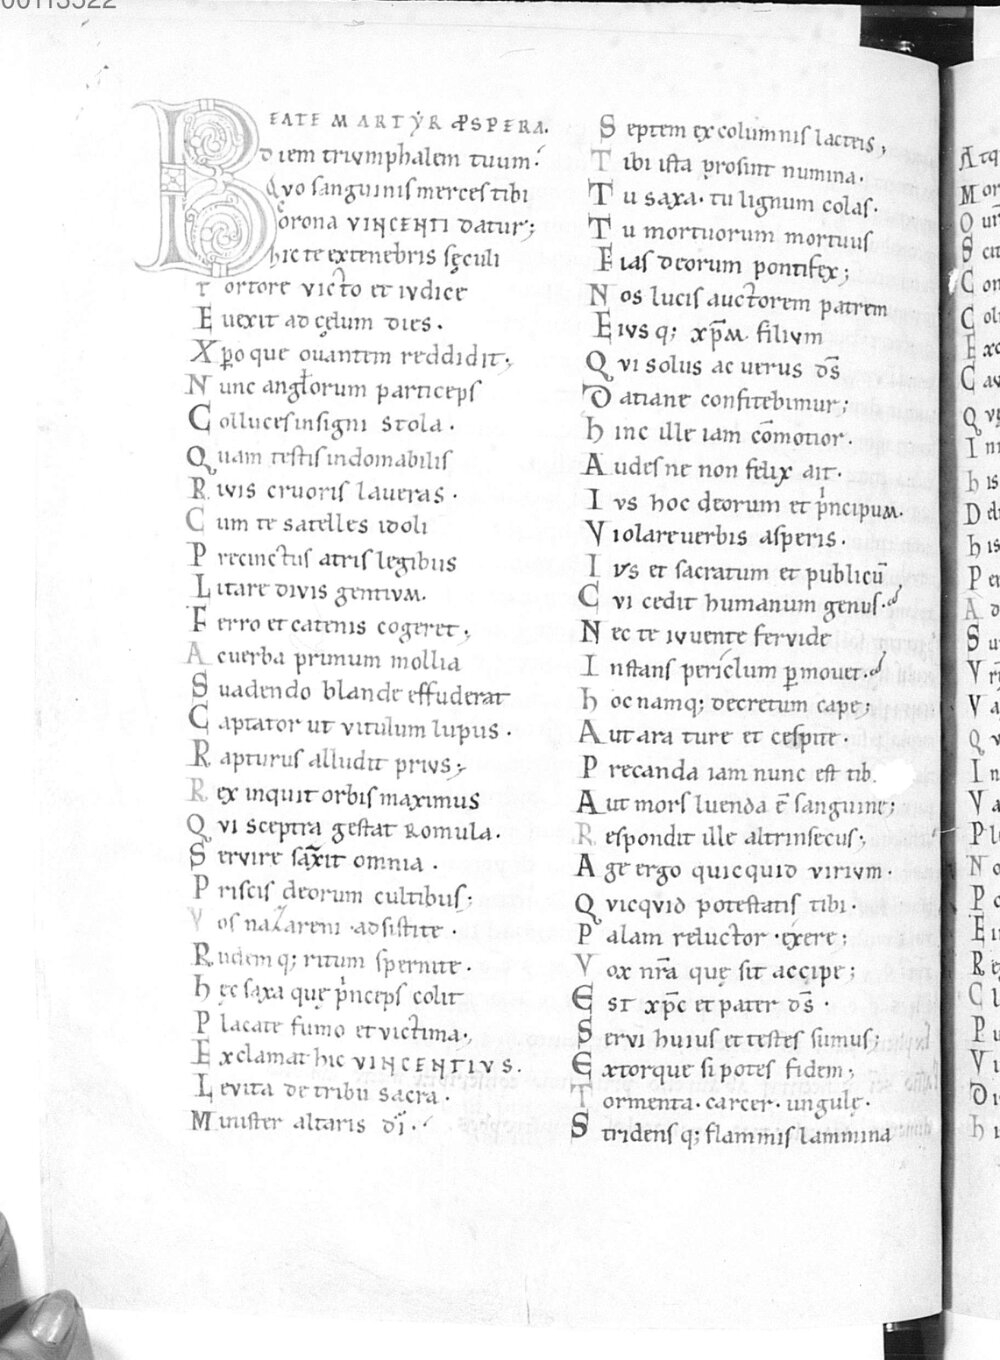 00113522
BEATE MARTẎR ꝓSPERA.
Diem triumphalem tuum.
Quo sanguinis merces tibi
Corona VINCENTI datur;
hic te extenebris sęculi
Tortore victo et iudice
Euexit ad cęlum dies.
Xp̄o que ouantem reddidit;
Nunc anglorum particeps
Colluces insigni stola.
Quam testis indomabilis
Riuis cruoris laueras.
Cum te satelles idoli
Precinctus atris legibus
Litare diuis gentium.
Ferro et catenis cogeret;
Acuerba primum mollia
Suadendo blande effuderat
Captator ut uitulum lupus.
Rapturus alludit prius;
Rex inquit orbis maximus
Qui sceptra gestat Romula.
Seruire sanxit omnia.
Priscis deorum cultibus;
Vos nazareni adsistite.
Rudem q; ritum spernite.
hęc saxa quę p̍nceps colit
Placate fumo et uictima.
Exclamat hic VINCENTIVS.
Leuita de tribu sacra.
Minister altaris dī.
Septem ex columnis lacteis;
Tibi ista prosint numina.
Tu saxa. tu lignum colas.
Tu mortuorum mortuus
Fias deorum pontifex;
Nos lucis auctorem patrem
Eius q; xp̄m. filium
Qui solus ac uerus ds̄
Datiane confitebimur;
hinc ille iam cōmotior.
Audes ne non felix ait.
Ius hoc deorum et p̍ncipum.
Violare uerbis asperis.
Ius et sacratum et publicū
Cui cedit humanum genus.
Nec te iuuente feruide
Instans periclum ꝑmouet.
hoc namq; decretum cape;
Aut ara ture et cespite.
Precanda iam nunc est tib
Aut mors luenda ē sanguine;
Respondit ille altrinsecus;
Age ergo quicquid uirium.
Quicquid potestatis tibi.
Palam reluctor. exere;
Vox nr̄a quę sit accipe;
Est xp̄c et pater ds̄.
Serui huius et testes sumus;
Extorque si potes fidem;
Tormenta. carcer. ungulę.
Stridens q; flammis lammina